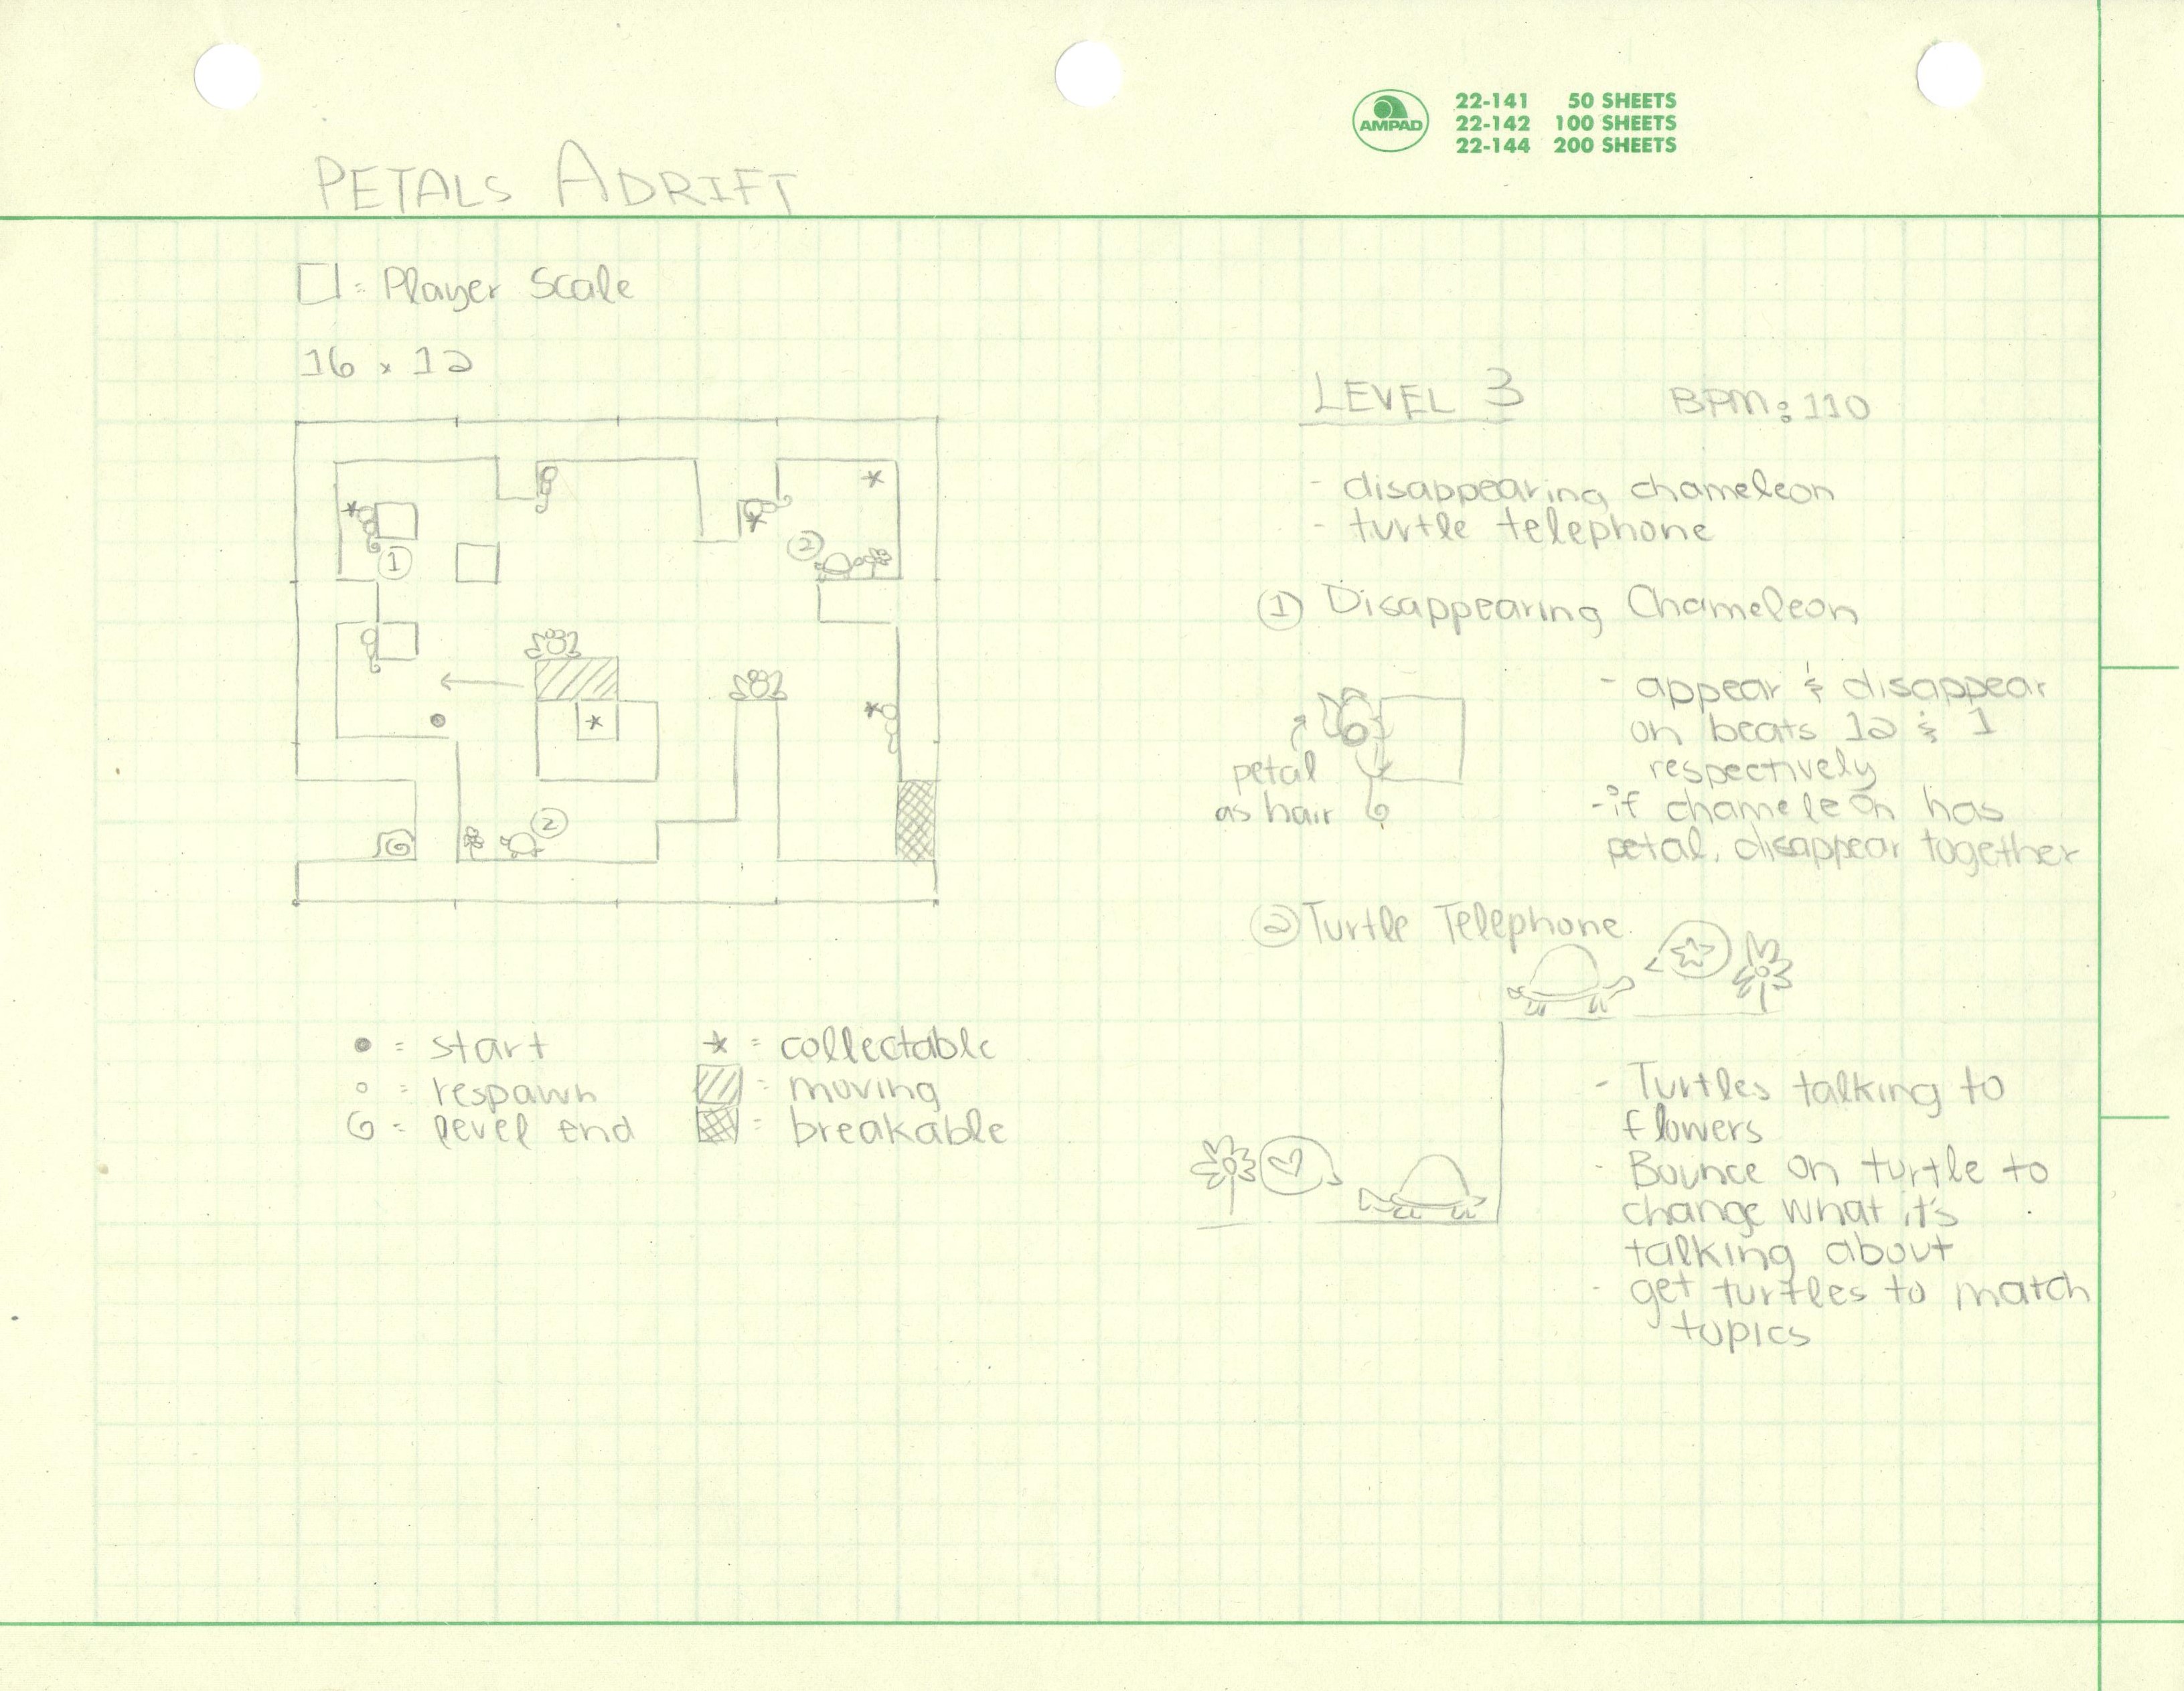 AMPAD
22-141 50 SHEETS
22-142 100 SHEETS
22-144 200 SHEETS
PETALS ADRIFT
= Player Scale
16 x 12
1
2
2
= start
= respawn
= level end
* = collectable
= moving
= breakable
LEVEL 3 BPM: 110
- disappearing chameleon
- turtle telephone
① Disappearing Chameleon
petal
as hair
- appear & disappear
on beats 12 & 1
respectively
- if chameleon has
petal, disappear together
② Turtle Telephone
- Turtles talking to
flowers
- Bounce on turtle to
change what it's
talking about
- get turtles to match
topics